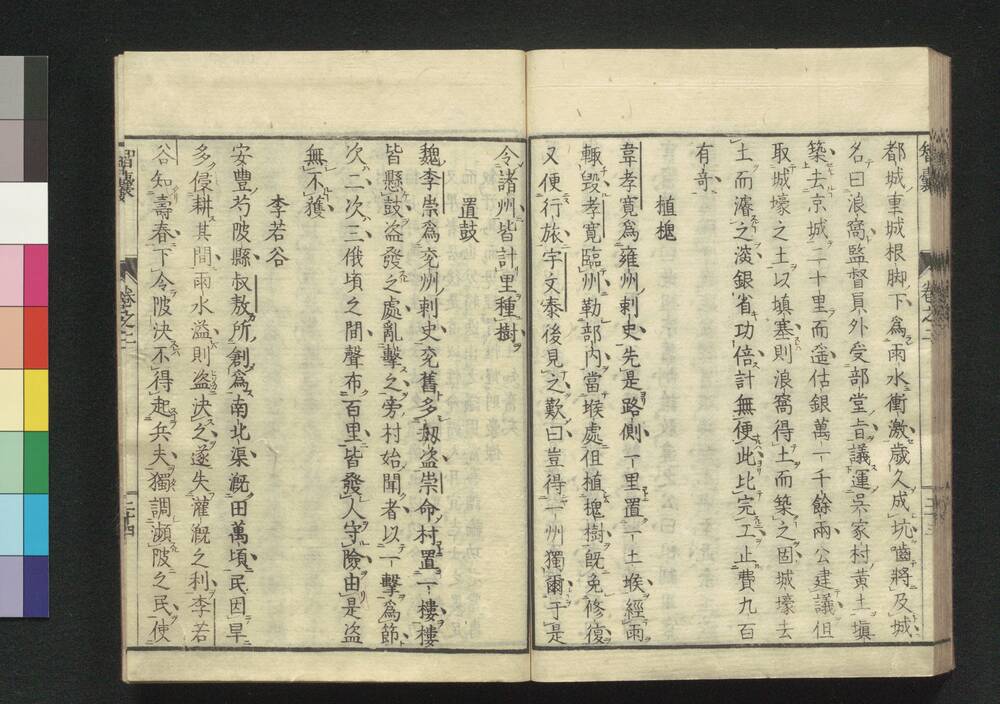 都城車城根脚下為雨水衝激歲久成坑嚙將及城
名曰浪窩監督員外受部堂㫖議運吳家村黄土塡
築去京城二十里而遥估銀萬一千餘兩公建議但
取城壕之土以填塞則浪窩得土而築之固城壕去
土而濬之淡銀省功倍計無便此比完工止費九百
有竒
植槐
韋孝寬為雍州刺史先是路側一里置一土堠經雨
輙毁孝寬臨州勒部内當堠處但植槐樹旣免修復
又便行旅宇文泰後見之歎曰豈得一州獨爾于是
令諸州皆計里種樹
置鼓
魏李崇為兖州刺史兖舊多刼盗崇命村置一樓樓
皆懸鼓盗發之處亂擊之旁村始聞者以一擊為節
次二次三俄頃之間聲布百里皆發人守險由是盗
無不獲
李若谷
安豐芍陂縣叔敖所創為南北渠漑田萬頃民因旱
多侵耕其間雨水溢則盗決之遂失灌漑之利李若
谷知壽春下令陂決不得起兵夫獨調瀕陂之民使
智囊
卷之二
智囊
卷之二
二十四